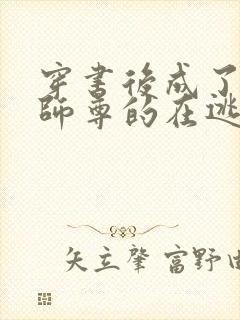 穿書後成了
師尊的在逃
矢立肇 富野由